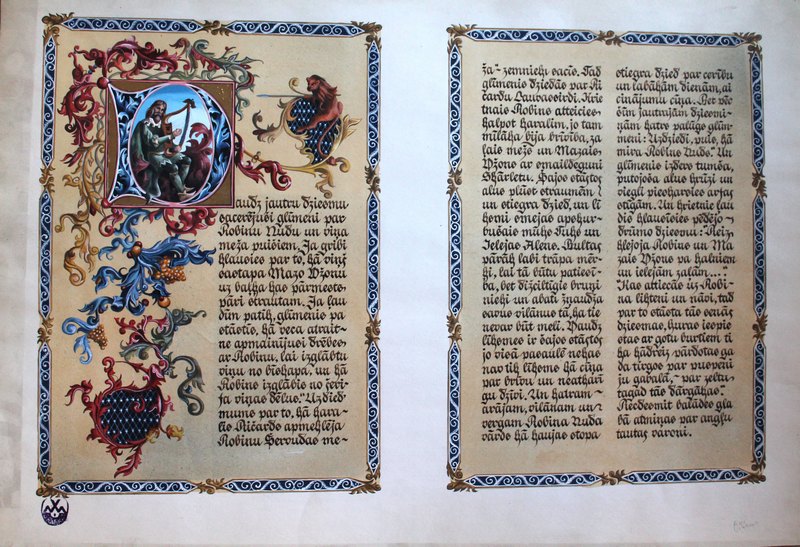 Daudz jautru dziesmu
sacerējuši glīmeņi par
Robinu Hudu un viņa
meža puišiem. Ja gribi
klausies par to, kā viņš
sastapa Mazo Džonu
uz baļķa kas pārmests
pāri strautam. Ja ļau
dīm patīk, glīmenis pa
stāstīs, kā veca atrait-
ne apmainījusi drēbes
ar Robinu, lai izglābtu
viņu no bīskapa, un kā
Robins izglābis no šeri-
ja viņas dēlus. Uzdied
mums par to, kā kara-
lis Ričards apmeklēja
Robinu Servudas me-
ža"- zemnieki sacīs. Tad
glīmenis dziedās par Ri
čardu Lauvassirdi. Kriet
nais Robins atteicies
kalpot karalim, jo tam
mīļāka bija brīvība, za
ļais mežs un Mazais
Džons ar smaildeguni
Skārletu. Šajos stāstos
alus plūst straumēm,
un stiegra dzied, un lī
ksmi smejas apskur-
bušais mūks Tuks un
Ielejas Alens. Bultas
pārāk labi trāpa mēr-
ķī, lai tā būtu patiesī-
ba, bet dižciltīgie bruņi
nieki un abati žņaudza
savus vilānus tā, ka tie
nevar būt meli. Daudz
līksmes ir šajos stāstos
jo visā pasaulē nekas
nav tik līksms kā cīņa
par brīvu un neatkarī
gu dzīvi. Un katram
arājam, vilānam un
vergam Robina Huda
vārds kā kaujas stopa
stiegra dzied par cerību
un labākām dienām, ai
cinājumu cīņa. Bet pēc
šīm jautrajām dziesmi-
ņām katrs palūgs glīm-
meni: Uzdziedi, puis, kā
mira Robins Huds." Un
glīmenis izdzers tumša,
putojoša alus krūzi un
viegli pieskarsies arfas
stīgām. Un krietnie ļau
dis klausīsies pēdējo
drūmo dziesmu: Reiz
klejoja Robins un Ma
zais Džons pa kalniem
un ielejām zaļām..."
Kas attiecās uz Robi-
na likteni un nāvi, tad
par to stāsta tās senās
dziesmas, kuras iespie
stas ar gotu burtiem ti
ka kādreiz pārdotas ga
da tirgos par puspeni
ju gabalā, - par zeltu
tagad tās dārgākas.
balādes gla
bā atmiņas par angļu
tautas varoni.